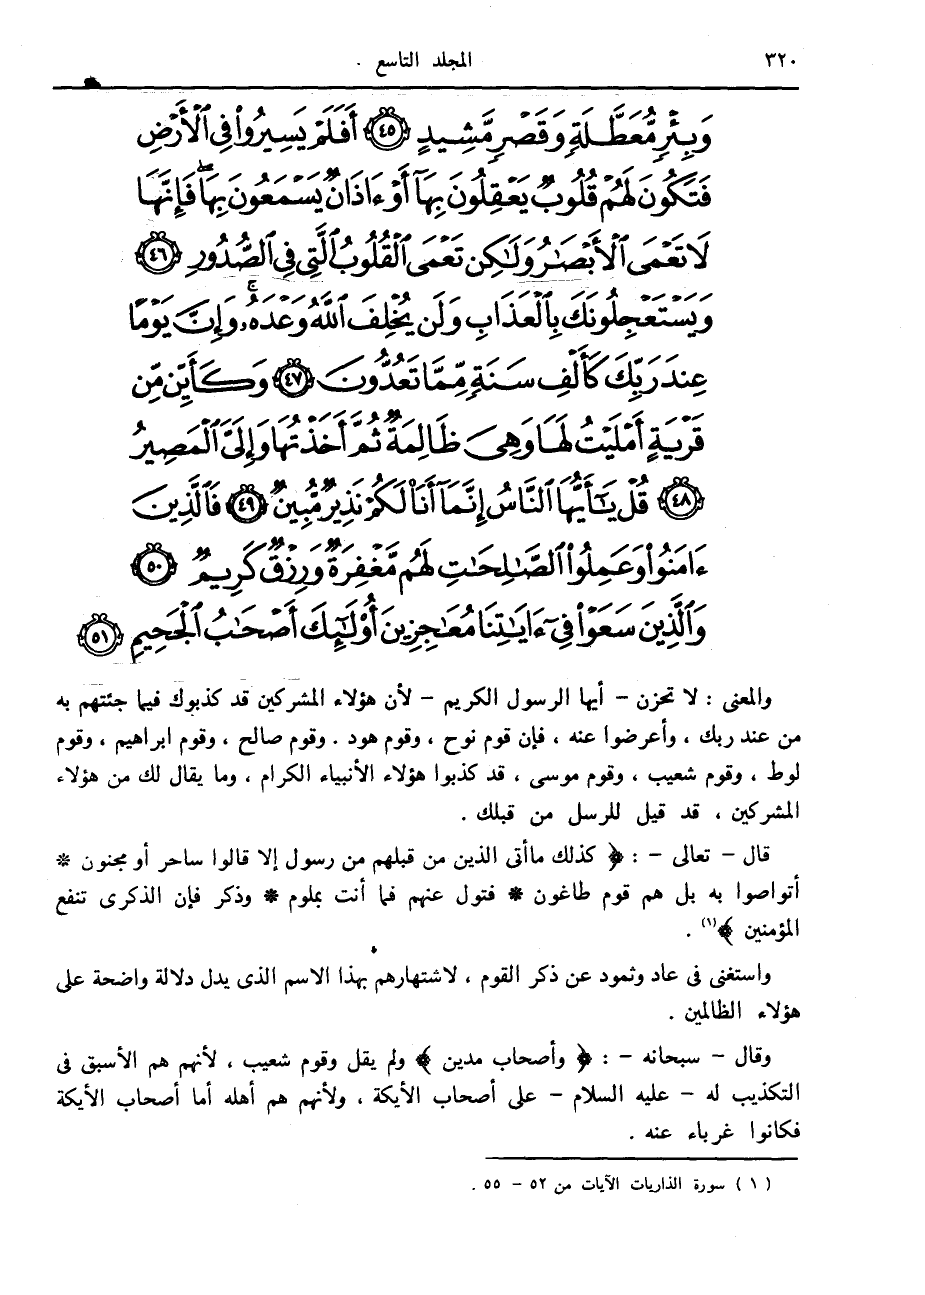 ٣٢٠ المجلد التاسع .
وَبِئْرٍ مُّعَطَّلَةٍ وَقَصْرٍ مَّشِيدٍ ﴿٤٥﴾ أَفَلَمْ يَسِيرُوا۟ فِى ٱلْأَرْضِ
فَتَكُونَ لَهُمْ قُلُوبٌ يَعْقِلُونَ بِهَآ أَوْ ءَاذَانٌ يَسْمَعُونَ بِهَا ۖ فَإِنَّهَا
لَا تَعْمَى ٱلْأَبْصَٰرُ وَلَٰكِن تَعْمَى ٱلْقُلُوبُ ٱلَّتِى فِى ٱلصُّدُورِ ﴿٤٦﴾
وَيَسْتَعْجِلُونَكَ بِٱلْعَذَابِ وَلَن يُخْلِفَ ٱللَّهُ وَعْدَهُۥ ۚ وَإِنَّ يَوْمًا
عِندَ رَبِّكَ كَأَلْفِ سَنَةٍ مِّمَّا تَعُدُّونَ ﴿٤٧﴾ وَكَأَيِّن مِّن
قَرْيَةٍ أَمْلَيْتُ لَهَا وَهِىَ ظَالِمَةٌ ثُمَّ أَخَذْتُهَا وَإِلَىَّ ٱلْمَصِيرُ
﴿٤٨﴾ قُلْ يَٰٓأَيُّهَا ٱلنَّاسُ إِنَّمَآ أَنَا۠ لَكُمْ نَذِيرٌ مُّبِينٌ ﴿٤٩﴾ فَٱلَّذِينَ
ءَامَنُوا۟ وَعَمِلُوا۟ ٱلصَّٰلِحَٰتِ لَهُم مَّغْفِرَةٌ وَرِزْقٌ كَرِيمٌ ﴿٥٠﴾
وَٱلَّذِينَ سَعَوْا۟ فِىٓ ءَايَٰتِنَا مُعَٰجِزِينَ أُو۟لَٰٓئِكَ أَصْحَٰبُ ٱلْجَحِيمِ ﴿٥١﴾
والمعنى : لا تحزن – أيها الرسول الكريم – لأن هؤلاء المشركين قد كذبوك فيما جئتهم به
من عند ربك ، وأعرضوا عنه ، فإن قوم نوح ، وقوم هود . وقوم صالح ، وقوم ابراهيم ، وقوم
لوط ، وقوم شعيب ، وقوم موسى ، قد كذبوا هؤلاء الأنبياء الكرام ، وما يقال لك من هؤلاء
المشركين ، قد قيل للرسل من قبلك .
قال – تعالى – : ﴿ كذلك ماأتى الذين من قبلهم من رسول إلا قالوا ساحر أو مجنون *
أتواصوا به بل هم قوم طاغون * فتول عنهم فما أنت بملوم * وذكر فإن الذكرى تنفع
المؤمنين ﴾(١) .
واستغنى فى عاد وثمود عن ذكر القوم ، لاشتهارهم بهذا الاسم الذى يدل دلالة واضحة على
هؤلاء الظالمين .
وقال – سبحانه – : ﴿ وأصحاب مدين ﴾ ولم يقل وقوم شعيب ، لأنهم هم الأسبق فى
التكذيب له – عليه السلام – على أصحاب الأيكة ، ولأنهم هم أهله أما أصحاب الأيكة
فكانوا غرباء عنه .
( ١ ) سورة الذاريات الآيات من ٥٢ – ٥٥ .